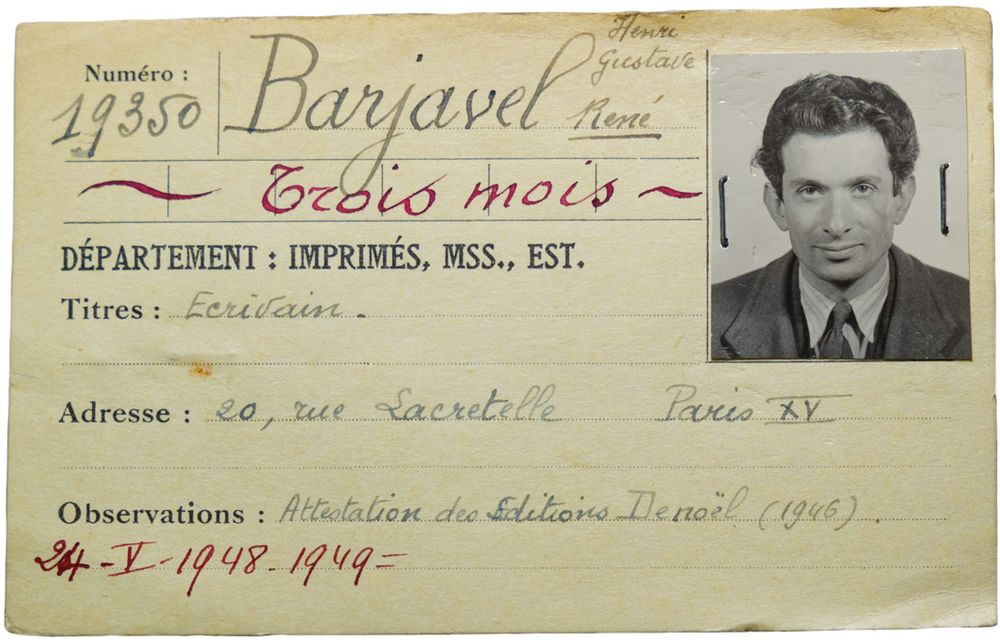 Numéro :
19350
Barjavel
Henri
Gustave
René
~ Trois mois ~
DÉPARTEMENT : IMPRIMÉS, MSS., EST.
Titres : Ecrivain.
Adresse : 20, rue Lacretelle Paris XV
Observations : Attestation des Editions Denoël (1946).
24-V-1948-1949=